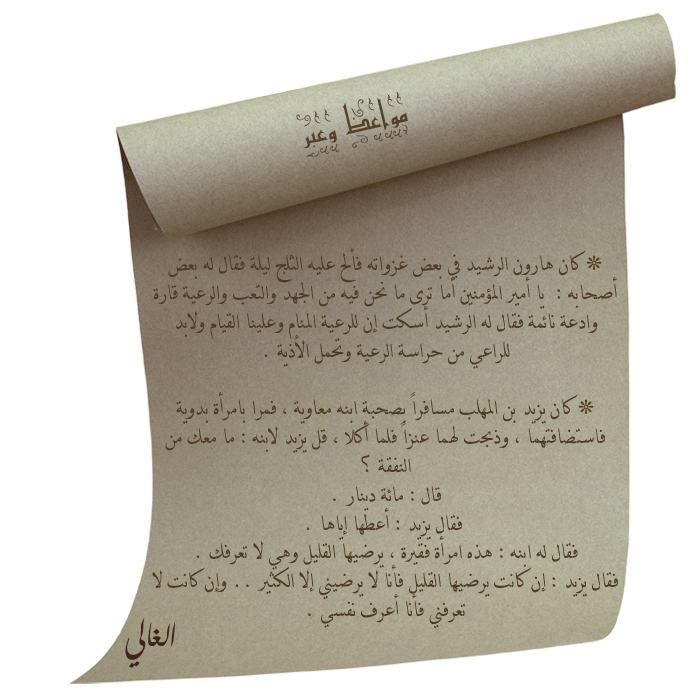 مواعظ وعبر
❊كان هارون الرشيد في بعض غزواته فألح عليه الثلج ليلة فقال له بعض
أصحابه : يا أمير المؤمنين أما ترى ما نحن فيه من الجهد والتعب والرعية قارة
وادعة نائمة فقال له الرشيد أسكت إن للرعية المنام وعلينا القيام ولابد
للراعي من حراسة الرعية وتحمل الأذية .
❊كان يزيد بن المهلب مسافراً بصحبة ابنه معاوية ، فمرا بامرأة بدوية
فاستضافتهما ، وذبحت لهما عنزاً فلما أكلا ، قل يزيد لابنه : ما معك من
النفقة ؟
قال : مائة دينار .
فقال يزيد : أعطها إياها .
فقال له ابنه : هذه امرأة فقيرة ، يرضيها القليل وهي لا تعرفك .
فقال يزيد : إن كانت يرضيها القليل فأنا لا يرضيني إلا الكثير . . وإن كانت لا
تعرفني فأنا أعرف نفسي .
الغالي